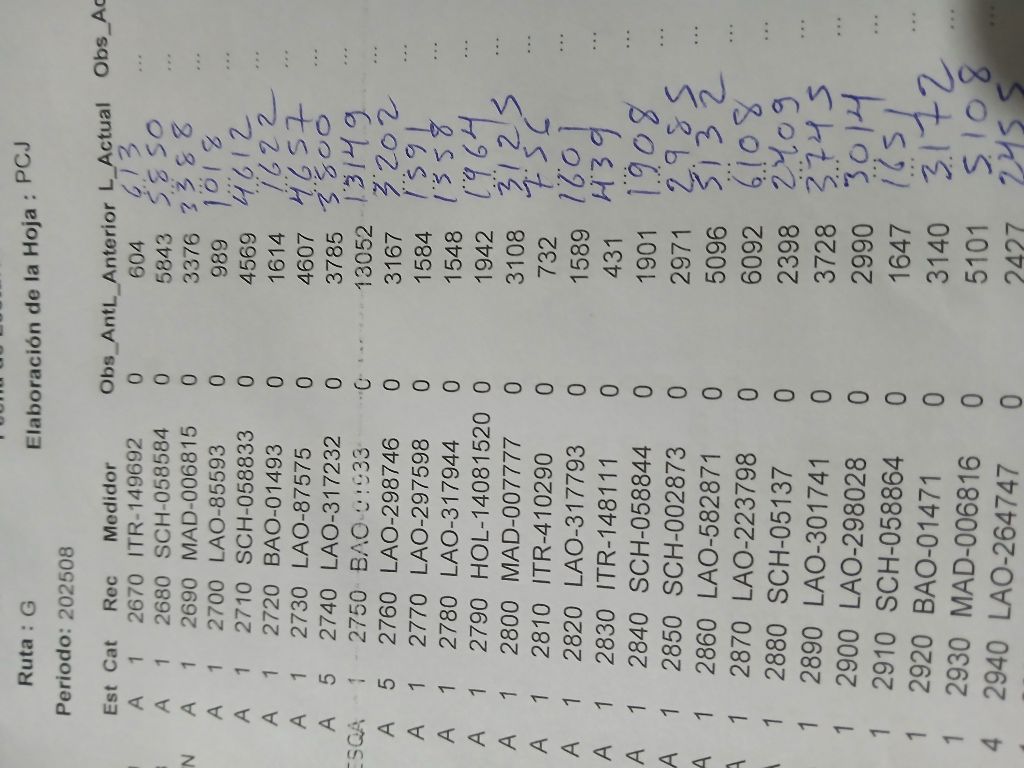 Elaboración de la Hoja : PCJ
Ruta : G
Periodo: 202508
Est Cat Rec Medidor Obs_Ant L_Anterior L_Actual Obs_Ac
A 1 2670 ITR-149692 0 604 613 ...
A 1 2680 SCH-058584 0 5843 5850 ...
A 1 2690 MAD-006815 0 3376 3388 ...
A 1 2700 LAO-85593 0 989 1018 ...
A 1 2710 SCH-058833 0 4569 4612 ...
A 1 2720 BAO-01493 0 1614 1622 ...
A 1 2730 LAO-87575 0 4607 4657 ...
A 5 2740 LAO-317232 0 3785 3800 ...
ESQA 1 2750 0 13052 13149 ...
A 5 2760 LAO-298746 0 3167 3202 ...
A 1 2770 LAO-297598 0 1584 1591 ...
A 1 2780 LAO-317944 0 1548 1558 ...
A 1 2790 HOL-14081520 0 1942 1964 ...
A 1 2800 MAD-007777 0 3108 3125 ...
A 1 2810 ITR-410290 0 732 756 ...
A 1 2820 LAO-317793 0 1589 1601 ...
A 1 2830 ITR-148111 0 431 439 ...
A 1 2840 SCH-058844 0 1901 1908 ...
A 1 2850 SCH-002873 0 2971 2985 ...
A 1 2860 LAO-582871 0 5096 5132 ...
A 1 2870 LAO-223798 0 6092 6108 ...
1 2880 SCH-05137 0 2398 2409 ...
1 2890 LAO-301741 0 3728 3745 ...
1 2900 LAO-298028 0 2990 3014 ...
1 2910 SCH-058864 0 1647 1651 ...
1 2920 BAO-01471 0 3140 3172 ...
1 2930 MAD-006816 0 5101 5108 ...
4 2940 LAO-2644747 0 2427 2455 ...